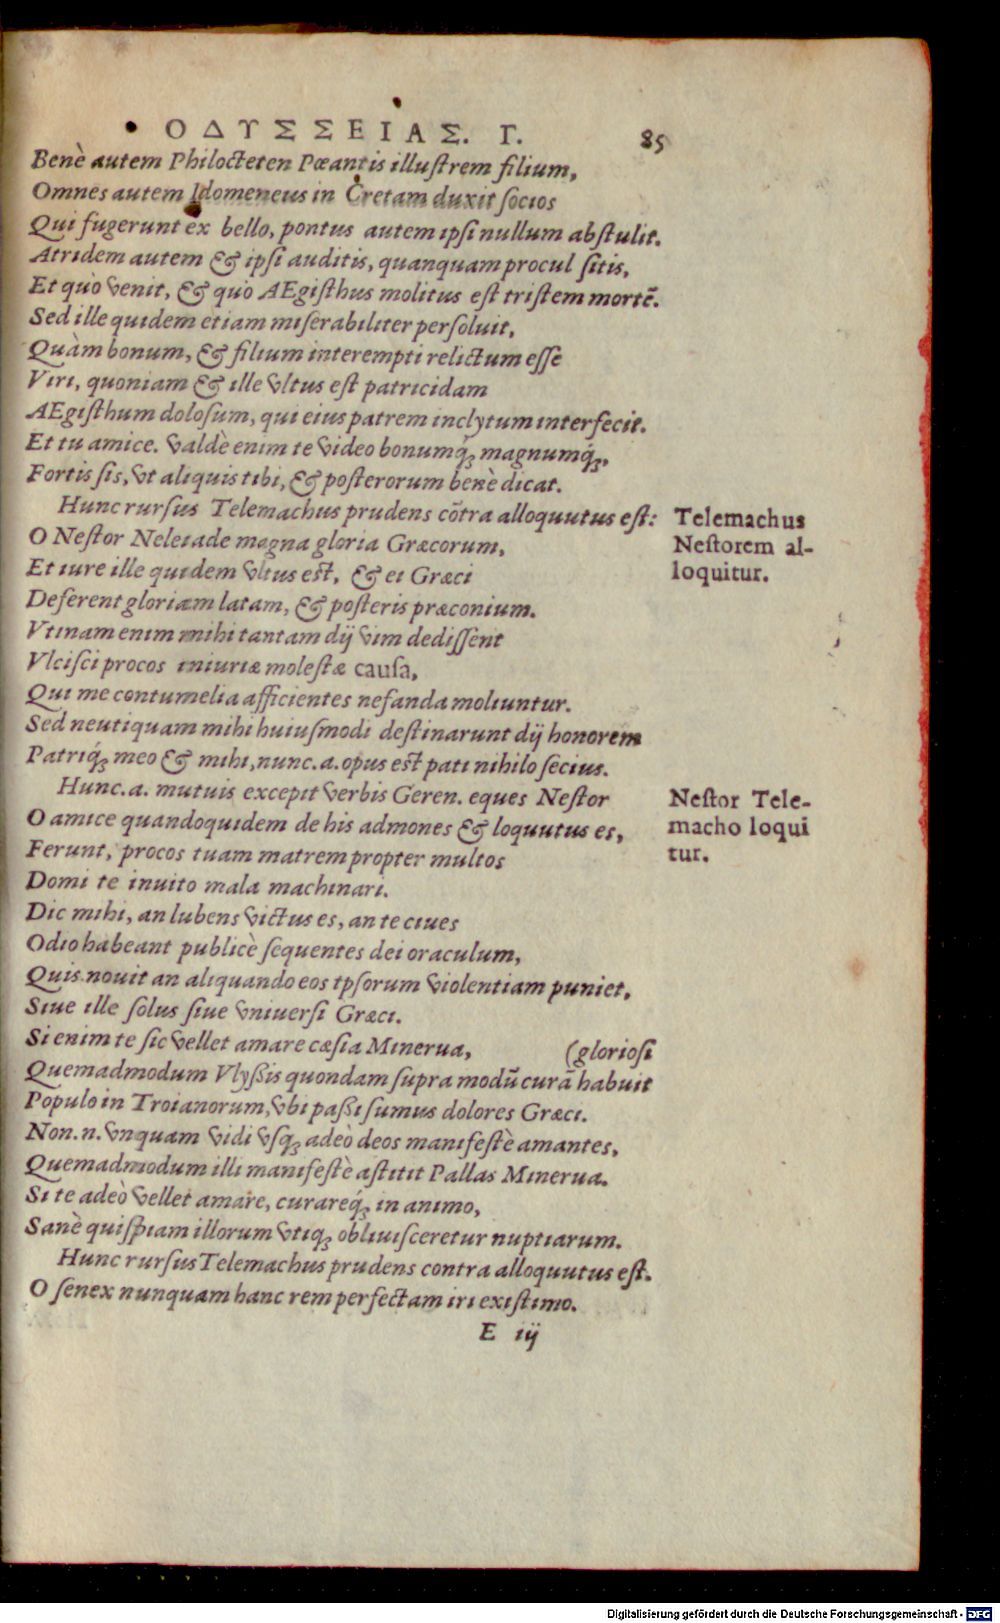 ΟΔΥΣΣΕΙΑΣ. Γ. 85
Benè autem Philocteten Pœantis illuſtrem filium,
Omnes autem Idomeneus in Cretam duxit ſocios
Qui fugerunt ex bello, pontus autem ipſi nullum abſtulit.
Atridem autem & ipſi auditis, quanquam procul ſitis,
Et quò venit, & quò AEgiſthus molitus eſt triſtem mortẽ.
Sed ille quidem etiam miſerabiliter perſoluit,
Quàm bonum, & filium interempti relictum eſſe
Viri, quoniam & ille vltus eſt patricidam
AEgiſthum doloſum, qui eius patrem inclytum interfecit.
Et tu amice. valdè enim te video bonumq́ꝫ magnumq́ꝫ,
Fortis ſis, vt aliquis tibi, & poſterorum benè dicat.
Hunc rurſus Telemachus prudens cõtra alloquutus eſt:
Telemachus
Neſtorem al-
loquitur.
O Neſtor Neleiade magna gloria Græcorum,
Et iure ille quidem vltus eſt, & ei Græci
Deferent gloriam latam, & poſteris præconium.
Vtinam enim mihi tantam dij vim dediſſent
Vlciſci procos iniuriæ moleſtæ cauſa,
Qui me contumelia afficientes nefanda moliuntur.
Sed neutiquam mihi huiuſmodi deſtinarunt dij honorem
Patriq́ꝫ meo & mihi, nunc.a.opus eſt pati nihilo ſecius.
Hunc.a. mutuis excepit verbis Geren. eques Neſtor
Neſtor Tele-
macho loqui
tur.
O amice quandoquidem de his admones & loquutus es,
Ferunt, procos tuam matrem propter multos
Domi te inuito mala machinari.
Dic mihi, an lubens victus es, an te ciues
Odio habeant publicè ſequentes dei oraculum,
Quis nouit an aliquando eos ipſorum violentiam puniet,
Siue ille ſolus ſiue vniuerſi Græci.
Si enim te ſic vellet amare cæſia Minerua, (glorioſi
Quemadmodum Vlyßis quondam ſupra modũ curã habuit
Populo in Troianorum, vbi paßi ſumus dolores Græci.
Non.n. vnquam vidi vſqꝫ adeò deos manifeſtè amantes,
Quemadmodum illi manifeſtè aſtitit Pallas Minerua.
Si te adeò vellet amare, curareq́ꝫ in animo,
Sanè quiſpiam illorum vtiqꝫ obliuiſceretur nuptiarum.
Hunc rurſus Telemachus prudens contra alloquutus eſt.
O ſenex nunquam hanc rem perfectam iri exiſtimo.
E iij
Digitalisierung gefördert durch die Deutsche Forschungsgemeinschaft - DFG